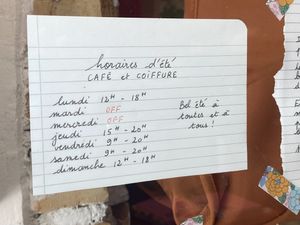 horaires d'été
CAFÉ et COIFFURE
lundi 12H - 18H
mardi OFF
mercredi OFF
jeudi 15H - 20H
vendredi 9H - 20H
samedi 9H - 20H
dimanche 12H - 18H
Bel été à
toutes et à
tous !